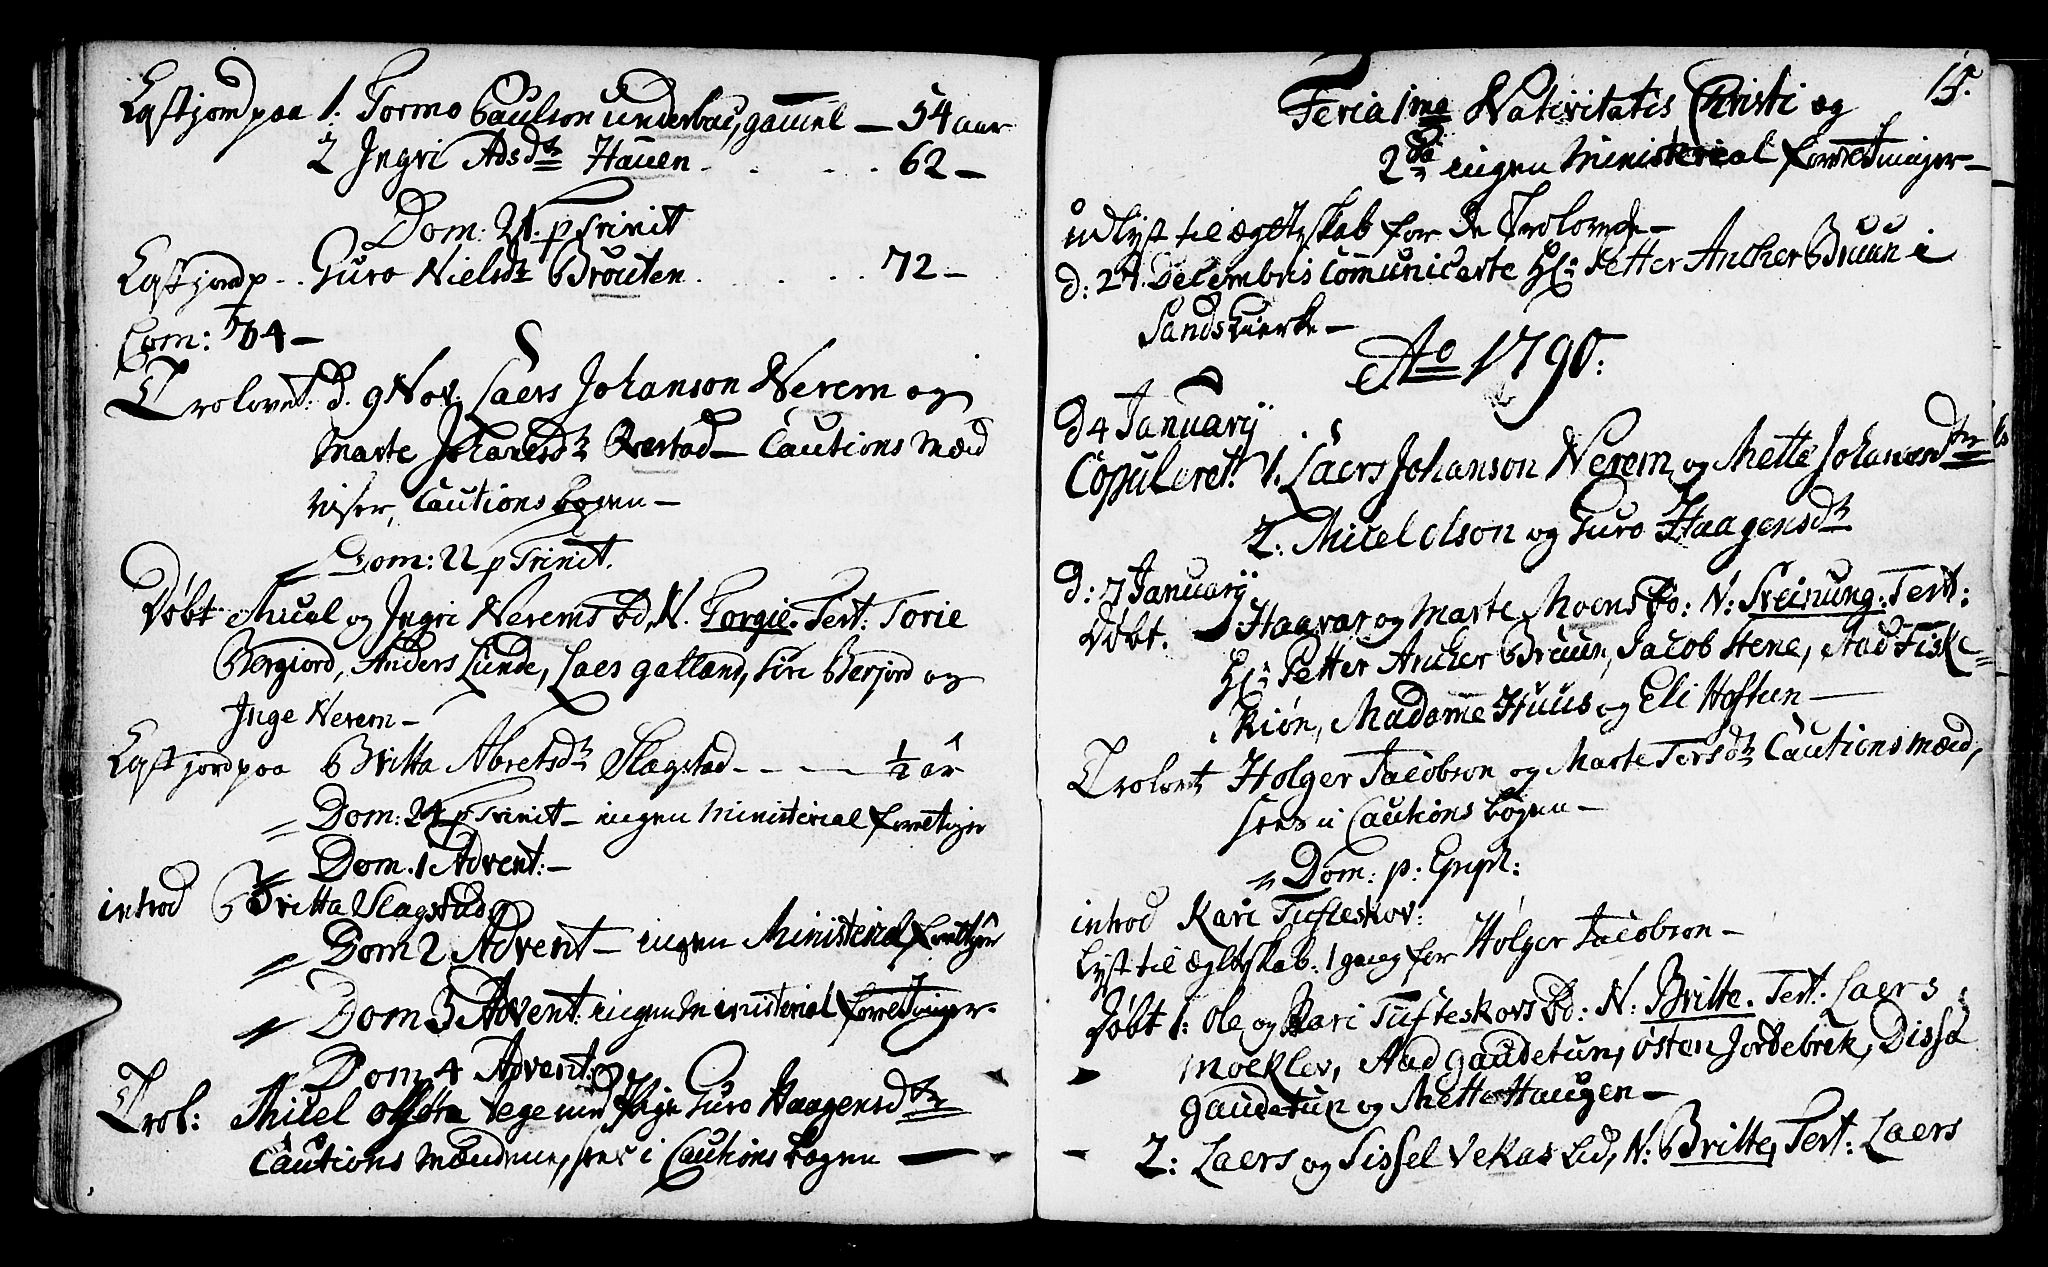 Kast jord paa 1. Tormo Paulson underbac, gamel — 54 aar
2 Ingri Adsdtr Hauen . . . . 62 —
Dom: 21. p Trinit
Kast jord p . . Guro Nielsdtr Brøuten . . . . 72 —
Com: 704 —
Trolovet: d. 9 Nov. Laers Johanson Nerem og
Marte Johanesdtr Ovestad — Cautions mæd
viser, Cautions bogen —
Dom: 22 p Trinit.
Døbt Micel og Ingri Nerems bd, N. Torgie. Test: Torie
Bergiord, Anders Lunde, Laes gatland, Siri Berjord og
Inge Nerem —
Kast jord paa Britta Abretsdtr Slagstad - - - — ½ år
Dom: 24 p Trinit — ingen ministerial forretniger
Dom. 1 Advent: —
introd Britta Slagstad
Dom 2 Advent — ingen Ministerial
Dom 3 Advent: ingen ministerial forretninger —
Dom 4 Advent:
Trol: Micel Vege med Pige Guro Haagensdtr
Cautions mændene, sees i Cautions bogen —
15.
Feria 1ma Nativitatis Christi og
2da ingen Ministerial forretninger —
udlyst til ægteskab for de Trolovede —
d: 27. Decembris Communicerte Hr: Petter Ancher Bruun i
Sandsværke —
Ao 1790:
d 4 Januarij
Copuleret: 1. Laers Johanson Nerem og Mette Johanesdtr
2. Micel Olson og Guro Haagensdtr
d: 7 Januarij
Døbt. Haavar og Marte Moens bo: N: Sveinung. Test:
Hr: Petter Ancher Bruun, Jacob Stene, Aad Fiske=
kiøn, Madame Huus og Eli Hoftun —
Trolovet Holger Jacobson og Marte Torsdtr Cautions mæd,
sees i Cautions bogen —
Dom: p: Epiph:
introd Kari Tufteskov:
Lyst til Ægteskab: 1 gang for Holger Jacobson —
Døbt 1: Ole og Kari Tufteskovs bd: N: Britte. Test: Laers
Moeklev, Aad gaudetun, østen Jordebrek, Dissa
Gaudetun og Mette Haugen —
2: Laers og Sissel Vekas bd, N: Britte, Test: Laers